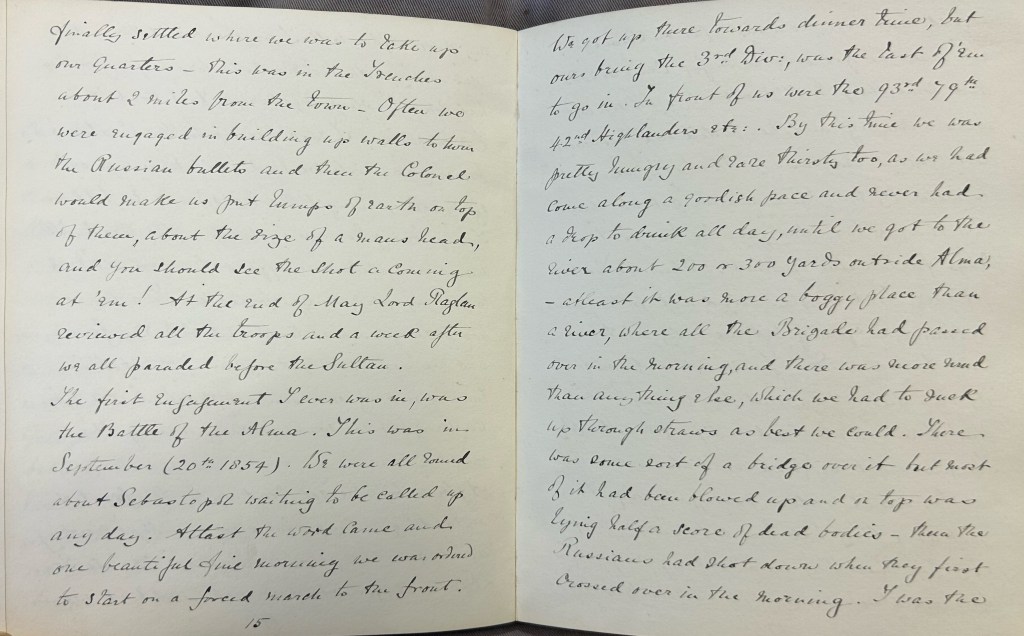 finally settled where we was to take up
our Quarters – this was in the Trenches
about 2 miles from the town – Often we
were engaged in building up walls to turn
the Russian bullets and then the Colonel
would make us put lumps of earth on top
of them, about the size of a mans head,
and you should see the shot a coming
at 'em! At the end of May Lord Raglan
reviewed all the troops and a week after
we all paraded before the Sultan.
The first Engagement I ever was in, was
the Battle of the Alma. This was in
September (20th 1854). We were all round
about Sebastopol waiting to be called up
any day. Atlast the word came and
one beautiful fine morning we was ordered
to start on a forced march to the front.
15
We got up there towards dinner time, but
ours being the 3rd Div:, was the last of 'em
to go in. In front of us were the 93rd 79th
42nd Highlanders etc:. By this time we was
pretty hungry and rare thirsty too, as we had
come along a goodish pace and never had
a drop to drink all day, until we got to the
river about 200 or 300 yards outside Alma,
– atleast it was more a boggy place than
a river, where all the Brigade had passed
over in the morning, and there was more mud
than anything else, which we had to suck
up through straws as best we could. There
was some sort of a bridge over it but most
of it had been blowed up and on top was
lying half a score of dead bodies – them the
Russians had shot down when they first
crossed over in the morning. I was the